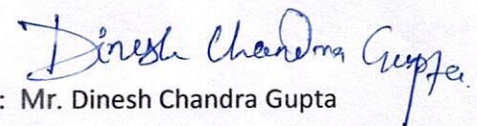 Dinesh Chandra Gupta
: Mr. Dinesh Chandra Gupta